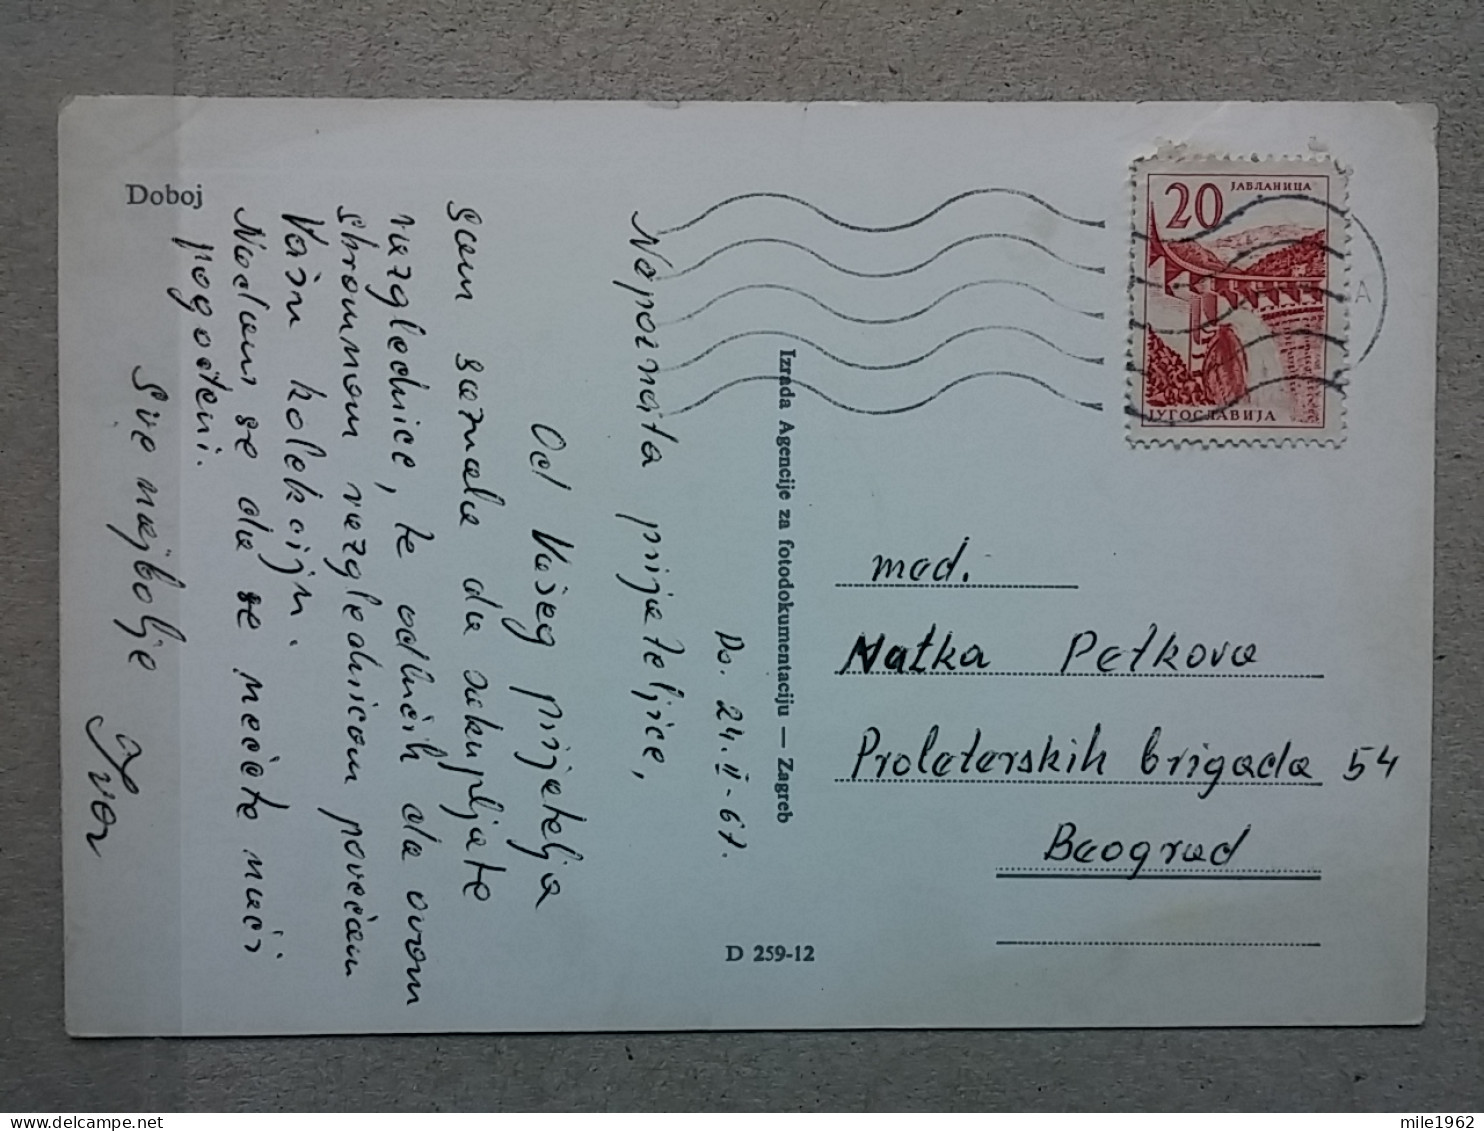 Doboj
Do. 24. II - 61.
Nepoznata prijateljice,
Od Vašeg prijatelja
sam saznala da sakupljate
razglednice, te odlučih da ovom
skromnom razglednicom povećam
Vašu kolekciju.
Nadam se da se nećete naći
pogođeni.
Sve najbolje
Izrada Agencije za fotodokumentaciju — Zagreb
D 259-12
20
ЈАБЛАНИЦА
ЈУГОСЛАВИЈА
A
Natka Petkova
Proleterskih brigada 54
Beograd
mile1962